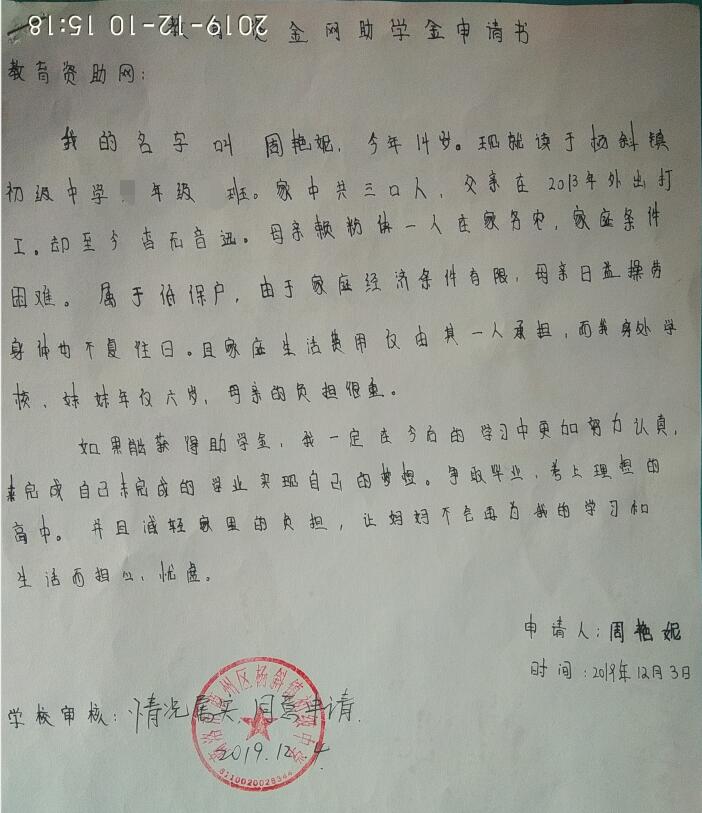 2019-12-10 15:18
教 金网助学金申请书
教育资助网：
我的名字叫 周艳妮，今年14岁。现就读于杨斜镇
初级中学 年级 班。家中共三口人，父亲在2013年外出打
工。却至今杳无音迅。母亲 粉 一人在家务农，家庭条件
困难。属于低保户，由于家庭经济条件有限，母亲日益操劳
身体也不复往日。且家庭生活费用仅由其一人承担，而我身处学
校，妹妹年仅六岁，母亲的负担很重。
如果能获得助学金，我一定在今后的学习中更加努力认真，
来完成自己未完成的学业实现自己的梦想。争取毕业，考上理想的
高中。并且减轻家里的负担，让妈妈不会再为我的学习和
生活而担心、忧虑。
申请人：周艳妮
时间：2019年12月3日
学校审核：情况属实 同意申请.
2019.12.4
商洛市商州区杨斜镇初级中学
6110020028344